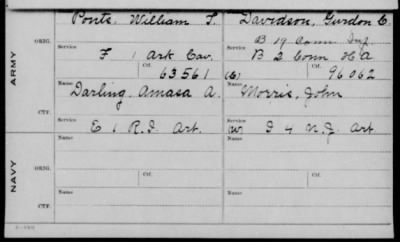 Ponts, William F. Davidson, Gurdon C.
ORIG. Service B 19 Conn Inf.
F 1 Ark Cav. Service B 2 Conn H A
ARMY Ctf. 63561 (C) Ctf. 96062
Name Darling, Amasa A. Name Morris, John
Service Service
CTF. E 1 R.I. Art. (W) G 4 N.J. Art
Name Name
NAVY ORIG. Service Service
Ctf. Ctf.
Name Name
CTF. Service